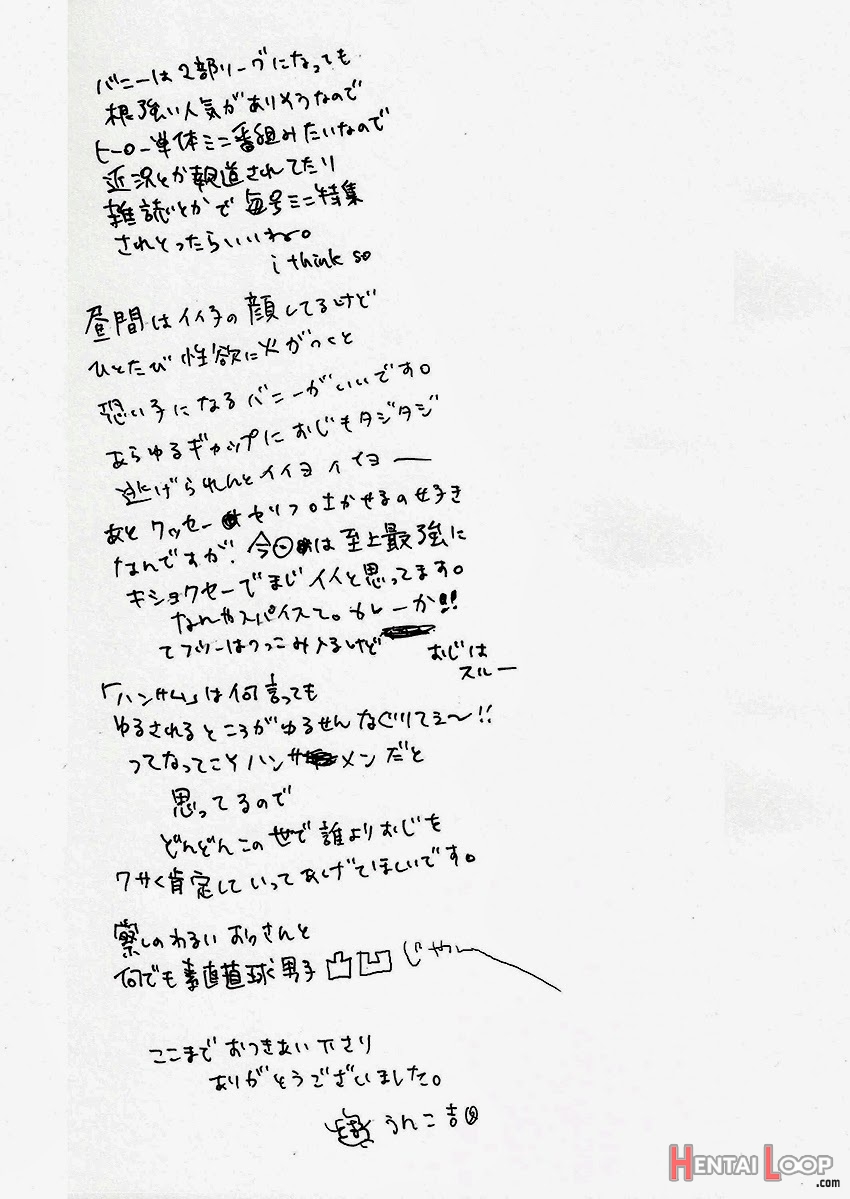 バニーは2部リーグになっても
根強い人気がありそうなので
ヒーロー単体ミニ番組みたいなので
近況とか報道されてたり
雑誌とかで毎号ミニ特集
されとったらいいね。
i think so
昼間はイイ子の顔してるけど
ひとたび性欲に火がつくと
恐い子になるバニーがいいです。
あらゆるギャップにおじもタジタジ
逃げられんとイイヨイイヨー
あとクッセーセリフ吐かせるの好き
なんですが、今回は至上最強に
キショクセーでまじイイと思ってます。
なんやスパイスて。カレーか!!
てフツーはつっこみ入るけど
おじは
スルー
「ハンサム」は何言っても
ゆるされるところがゆるせんなぐりてぇ〜!!
ってなってこそハンサメンだと
思ってるので
どんどんこの世で誰よりおじを
クサく肯定していってあげてほしいです。
察しのわるいおっさんと
何でも素直直球男子凸凹じゃー
ここまでおつきあい下さり
ありがとうございました。
うんこ吉
HENTAI LOOP
.com